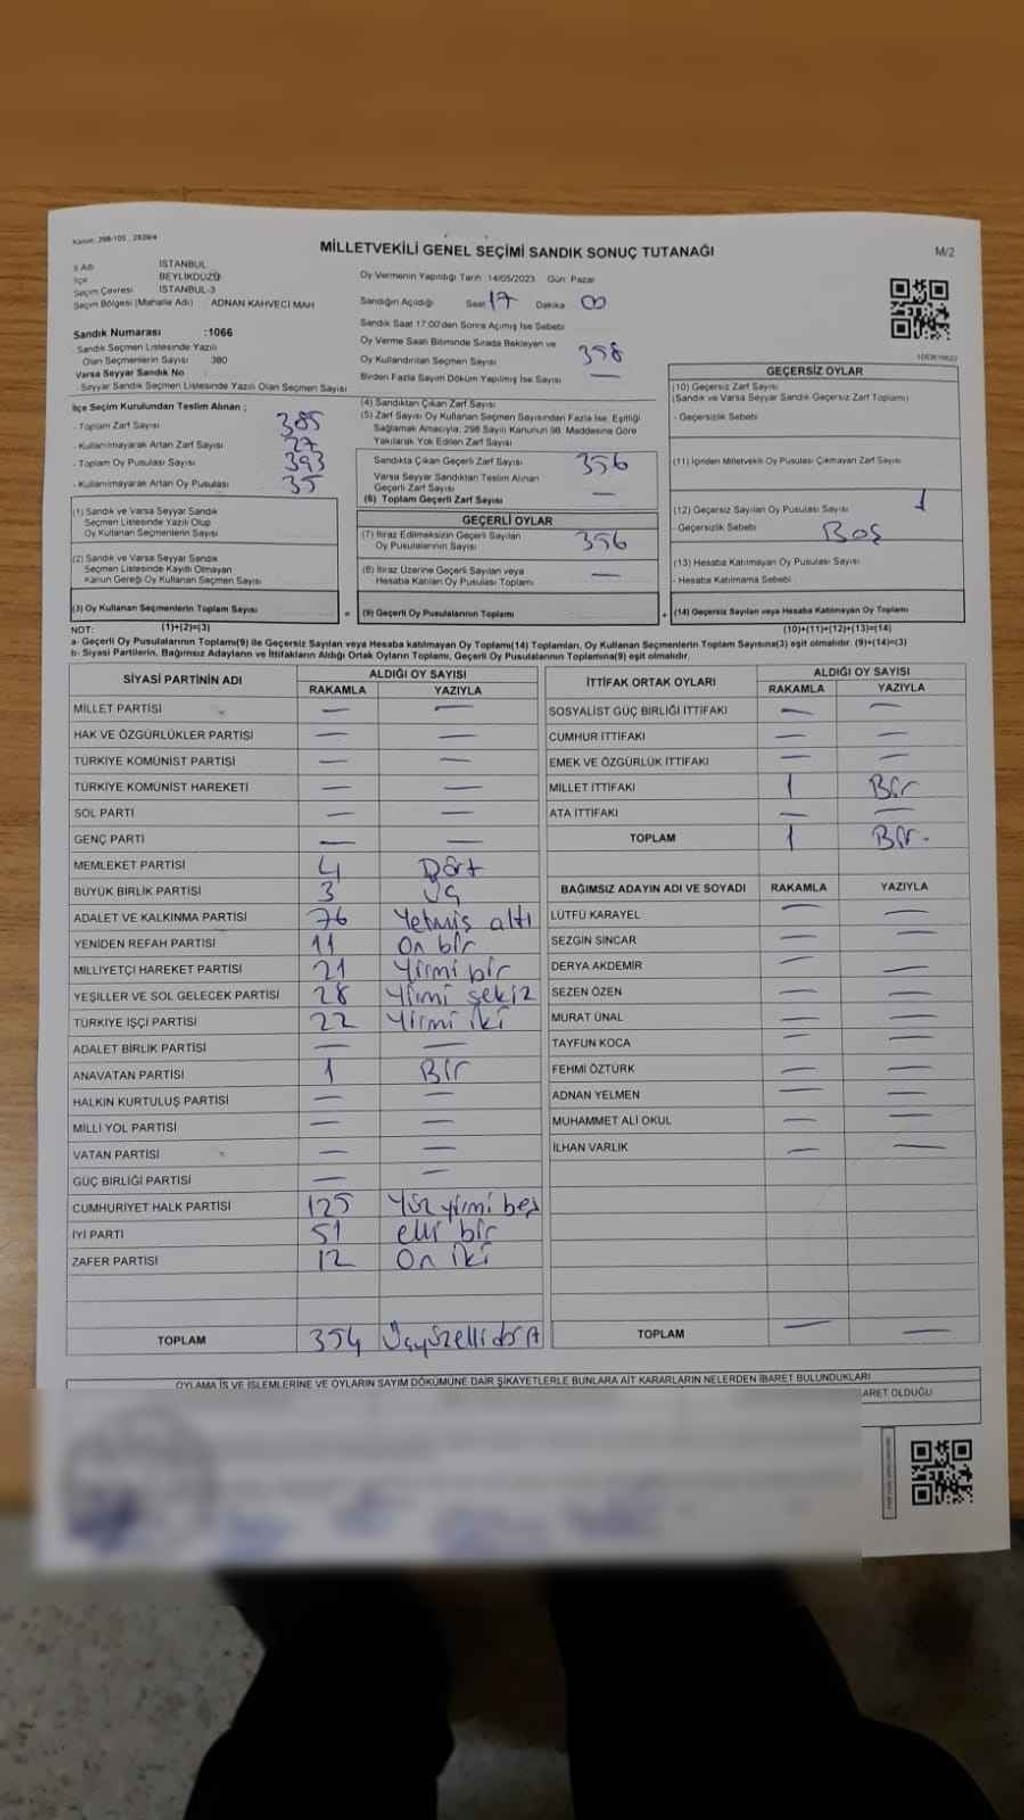 Kanun: 298/105 , 2839/4
MİLLETVEKİLİ GENEL SEÇİMİ SANDIK SONUÇ TUTANAĞI
M/2
İl Adı İSTANBUL
İlçe BEYLİKDÜZÜ
Seçim Çevresi İSTANBUL-3
Seçim Bölgesi (Mahalle Adı) ADNAN KAHVECİ MAH
Oy Vermenin Yapıldığı Tarih :14/05/2023 Gün: Pazar
Sandığın Açıldığı Saat 17 Dakika 00
Sandık Saat 17:00'den Sonra Açılmış İse Sebebi
Oy Verme Saati Bitiminde Sırada Bekleyen ve
Oy Kullandırılan Seçmen Sayısı 358
Birden Fazla Sayım Döküm Yapılmış İse Sayısı —
Sandık Numarası :1066
Sandık Seçmen Listesinde Yazılı
Olan Seçmenlerin Sayısı 380
Varsa Seyyar Sandık No
Seyyar Sandık Seçmen Listesinde Yazılı Olan Seçmen Sayısı
İlçe Seçim Kurulundan Teslim Alınan ;
- Toplam Zarf Sayısı 385
- Kullanılmayarak Artan Zarf Sayısı 27
- Toplam Oy Pusulası Sayısı 393
- Kullanılmayarak Artan Oy Pusulası 35
(1) Sandık ve Varsa Seyyar Sandık
Seçmen Listesinde Yazılı Olup
Oy Kullanan Seçmenlerin Sayısı
(2) Sandık ve Varsa Seyyar Sandık
Seçmen Listesinde Kayıtlı Olmayan
Kanun Gereği Oy Kullanan Seçmen Sayısı
(3) Oy Kullanan Seçmenlerin Toplam Sayısı
(4) Sandıktan Çıkan Zarf Sayısı
(5) Zarf Sayısı Oy Kullanan Seçmen Sayısından Fazla İse, Eşitliği
Sağlamak Amacıyla, 298 Sayılı Kanunun 98. Maddesine Göre
Yakılarak Yok Edilen Zarf Sayısı
Sandıkta Çıkan Geçerli Zarf Sayısı 356
Varsa Seyyar Sandıktan Teslim Alınan
Geçerli Zarf Sayısı —
(6) Toplam Geçerli Zarf Sayısı
GEÇERLİ OYLAR
(7) İtiraz Edilmeksizin Geçerli Sayılan
Oy Pusulalarının Sayısı 356
(8) İtiraz Üzerine Geçerli Sayılan veya
Hesaba Katılan Oy Pusulası Toplamı —
= (9) Geçerli Oy Pusulalarının Toplamı
GEÇERSİZ OYLAR
(10) Geçersiz Zarf Sayısı
(Sandık ve Varsa Seyyar Sandık Geçersiz Zarf Toplamı)
- Geçersizlik Sebebi
(11) İçinden Milletvekili Oy Pusulası Çıkmayan Zarf Sayısı
(12) Geçersiz Sayılan Oy Pusulası Sayısı 1
Geçersizlik Sebebi Boş
(13) Hesaba Katılmayan Oy Pusulası Sayısı
- Hesaba Katılmama Sebebi
+ (14) Geçersiz Sayılan veya Hesaba Katılmayan Oy Toplamı
NOT: (1)+(2)=(3)
(10)+(11)+(12)+(13)=(14)
a- Geçerli Oy Pusulalarının Toplamı(9) ile Geçersiz Sayılan veya Hesaba katılmayan Oy Toplamı(14) Toplamları, Oy Kullanan Seçmenlerin Toplam Sayısına(3) eşit olmalıdır. (9)+(14)=(3)
b- Siyasi Partilerin, Bağımsız Adayların ve İttifakların Aldığı Ortak Oyların Toplamı, Geçerli Oy Pusulalarının Toplamına(9) eşit olmalıdır.
SİYASİ PARTİNİN ADI ALDIĞI OY SAYISI
RAKAMLA YAZIYLA
MİLLET PARTİSİ — —
HAK VE ÖZGÜRLÜKLER PARTİSİ — —
TÜRKİYE KOMÜNİST PARTİSİ — —
TÜRKİYE KOMÜNİST HAREKETİ — —
SOL PARTİ — —
GENÇ PARTİ — —
MEMLEKET PARTİSİ 4 Dört
BÜYÜK BİRLİK PARTİSİ 3 üç
ADALET VE KALKINMA PARTİSİ 76 Yetmiş altı
YENİDEN REFAH PARTİSİ 11 On bir
MİLLİYETÇİ HAREKET PARTİSİ 21 Yirmi bir
YEŞİLLER VE SOL GELECEK PARTİSİ 28 Yirmi sekiz
TÜRKİYE İŞÇİ PARTİSİ 22 Yirmi iki
ADALET BİRLİK PARTİSİ — —
ANAVATAN PARTİSİ 1 Bir
HALKIN KURTULUŞ PARTİSİ — —
MİLLİ YOL PARTİSİ — —
VATAN PARTİSİ — —
GÜÇ BİRLİĞİ PARTİSİ — —
CUMHURİYET HALK PARTİSİ 125 Yüz yirmi beş
İYİ PARTİ 51 elli bir
ZAFER PARTİSİ 12 On iki
TOPLAM 354 Üçyüzellidört
İTTİFAK ORTAK OYLARI ALDIĞI OY SAYISI
RAKAMLA YAZIYLA
SOSYALİST GÜÇ BİRLİĞİ İTTİFAKI — —
CUMHUR İTTİFAKI — —
EMEK VE ÖZGÜRLÜK İTTİFAKI — —
MİLLET İTTİFAKI 1 Bir
ATA İTTİFAKI — —
TOPLAM 1 Bir.
BAĞIMSIZ ADAYIN ADI VE SOYADI RAKAMLA YAZIYLA
LÜTFÜ KARAYEL — —
SEZGİN SİNCAR — —
DERYA AKDEMİR — —
SEZEN ÖZEN — —
MURAT ÜNAL — —
TAYFUN KOCA — —
FEHMİ ÖZTÜRK — —
ADNAN YELMEN — —
MUHAMMET ALİ OKUL — —
İLHAN VARLIK — —
TOPLAM — —
OYLAMA İŞ VE İŞLEMLERİNE VE OYLARIN SAYIM DÖKÜMÜNE DAİR ŞİKAYETLERLE BUNLARA AİT KARARLARIN NELERDEN İBARET BULUNDUKLARI
OLDUĞU